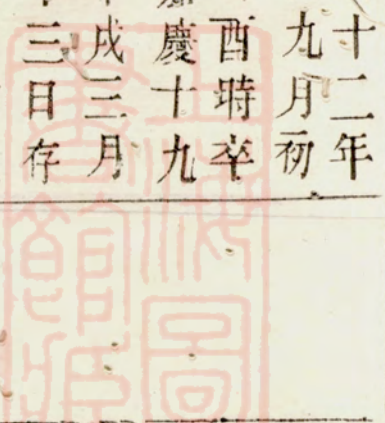 十二年
九月初
酉時卒
慶十九
戌三月
三日存